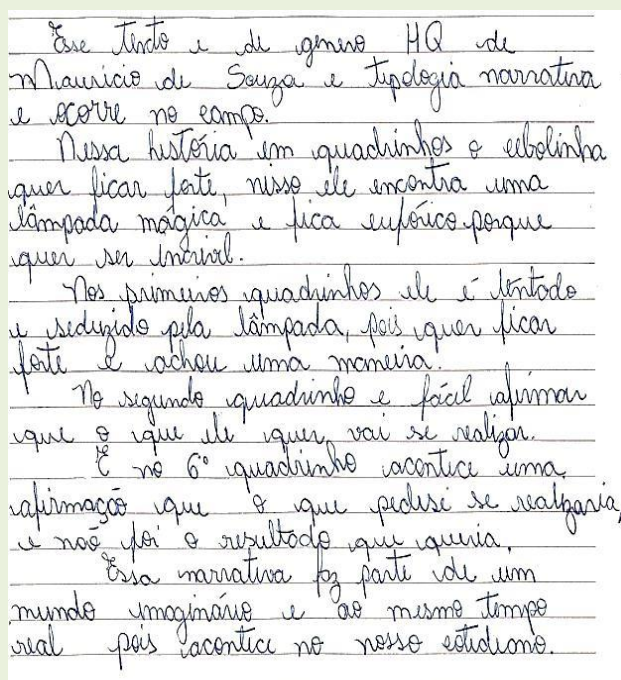 Esse texto e de genero HQ de
Mauricio de Souza e tipologia narrativa
e ocorre no campo.
Nessa história em quadrinhos o cebolinha
quer ficar forte, nisso ele encontra uma
lâmpada mágica e fica eufórico porque
quer ser incrivel.
Nos primeiros quadrinhos ele é tentado
e seduzido pela lâmpada, pois quer ficar
forte e achou uma maneira.
No segundo quadrinho e fácil afirmar
que o que ele quer, vai se realizar.
E no 6° quadrinho acontece uma
afirmação que o que pedisse se realizaria,
e não foi o resultado que queria.
Essa narrativa faz parte de um
mundo imaginário e ao mesmo tempo
real pois acontece no nosso cotidiano.